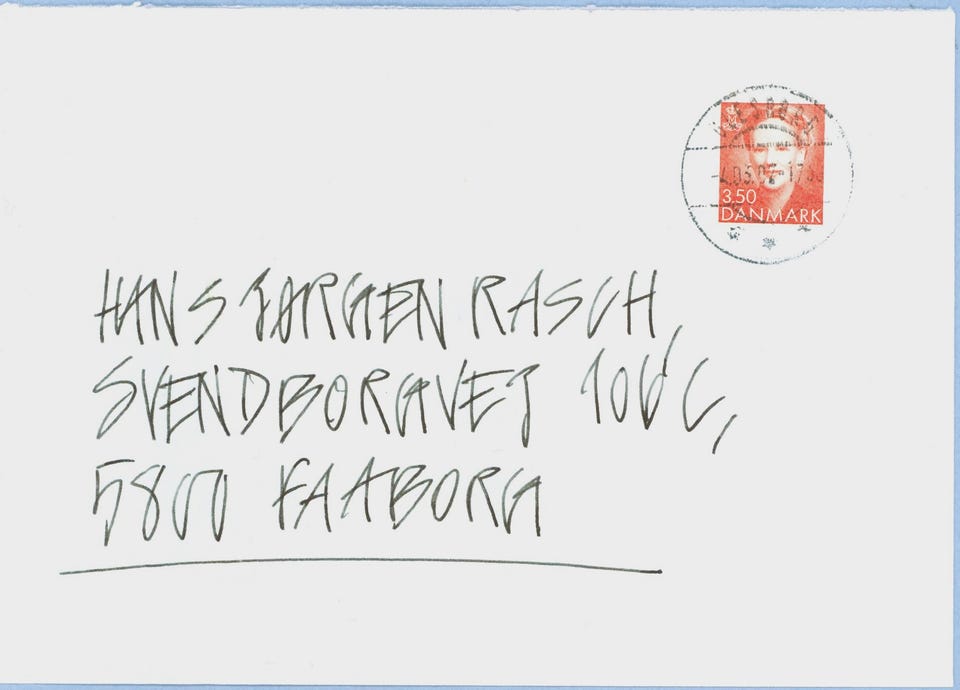 3.50
DANMARK
HANS JØRGEN RASCH
SVENDBORGVEJ 106 C,
5800 FAABORG